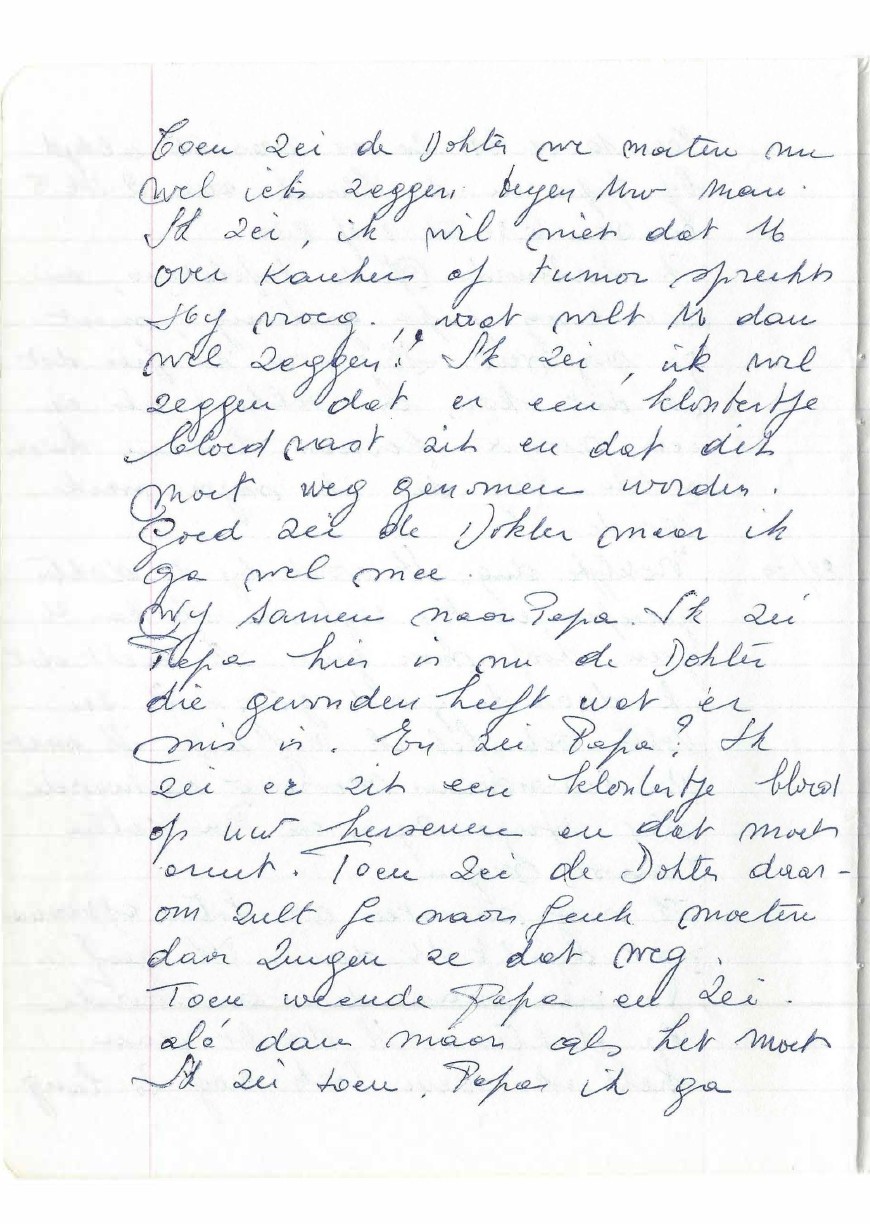 Toen zei de Dokter we moeten nu
wel iets zeggen tegen Uw man.
Ik zei, ik wil niet dat U
over Kanker of tumor spreekt
Hy vroeg. wat wilt U dan
wel zeggen? Ik zei, ik wil
zeggen dat er een klontertje
bloed vast zit en dat dit
moet weg genomen worden.
Goed zei de Dokter maar ik
ga wel mee.
Wy samen naar Papa. Ik zei
Papa hier is nu de Dokter
die gevonden heeft wat er
mis is. En zei Papa? Ik
zei er zit een klontertje bloed
op uw hersenen en dat moet
eruit. Toen zei de Dokter daar-
om zult ge naar Genk moeten
daar zuigen ze dat weg.
Toen weende Papa en zei.
alé dan maar als het moet
Ik zei toen, Papa ik ga